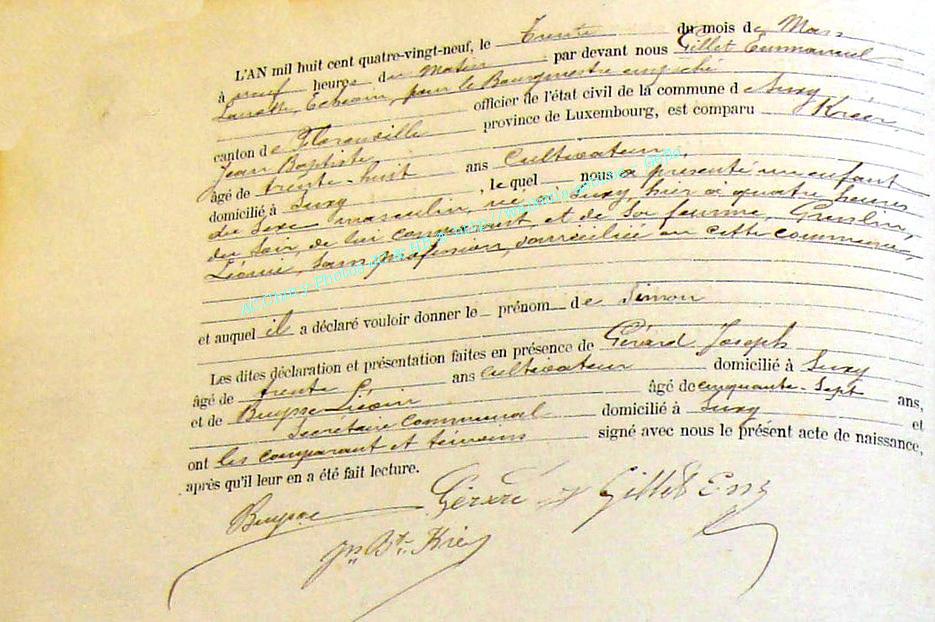 L'AN mil huit cent quatre-vingt-neuf, le trente du mois de Mars
à neuf heures du Matin par devant nous Gillet Emmanuel
Echevin, pour le Bourgmestre empêché
officier de l'état civil de la commune de Suxy
canton de Florenville province de Luxembourg, est comparu Krier
Jean Baptiste
âgé de trente-huit ans Cultivateur,
domicilié à Suxy, le quel nous a présenté un enfant
du Sexe masculin, né à Suxy, hier à quatre heures
du soir, de lui comparant et de Son femme,
Léonie, Sans profession, domiciliée en cette commune,
et auquel il a déclaré vouloir donner le prénom de Simon
Les dites déclaration et présentation faites en présence de Gérard Joseph
âgé de trente ans Cultivateur domicilié à Suxy
et de Buysse âgé de cinquante-Sept ans,
Secrétaire communal domicilié à Suxy et
ont les comparant et témoins signé avec nous le présent acte de naissance,
après qu'il leur en a été fait lecture.
Buysse Gérard J Gillet Em
Jn Bte Krier